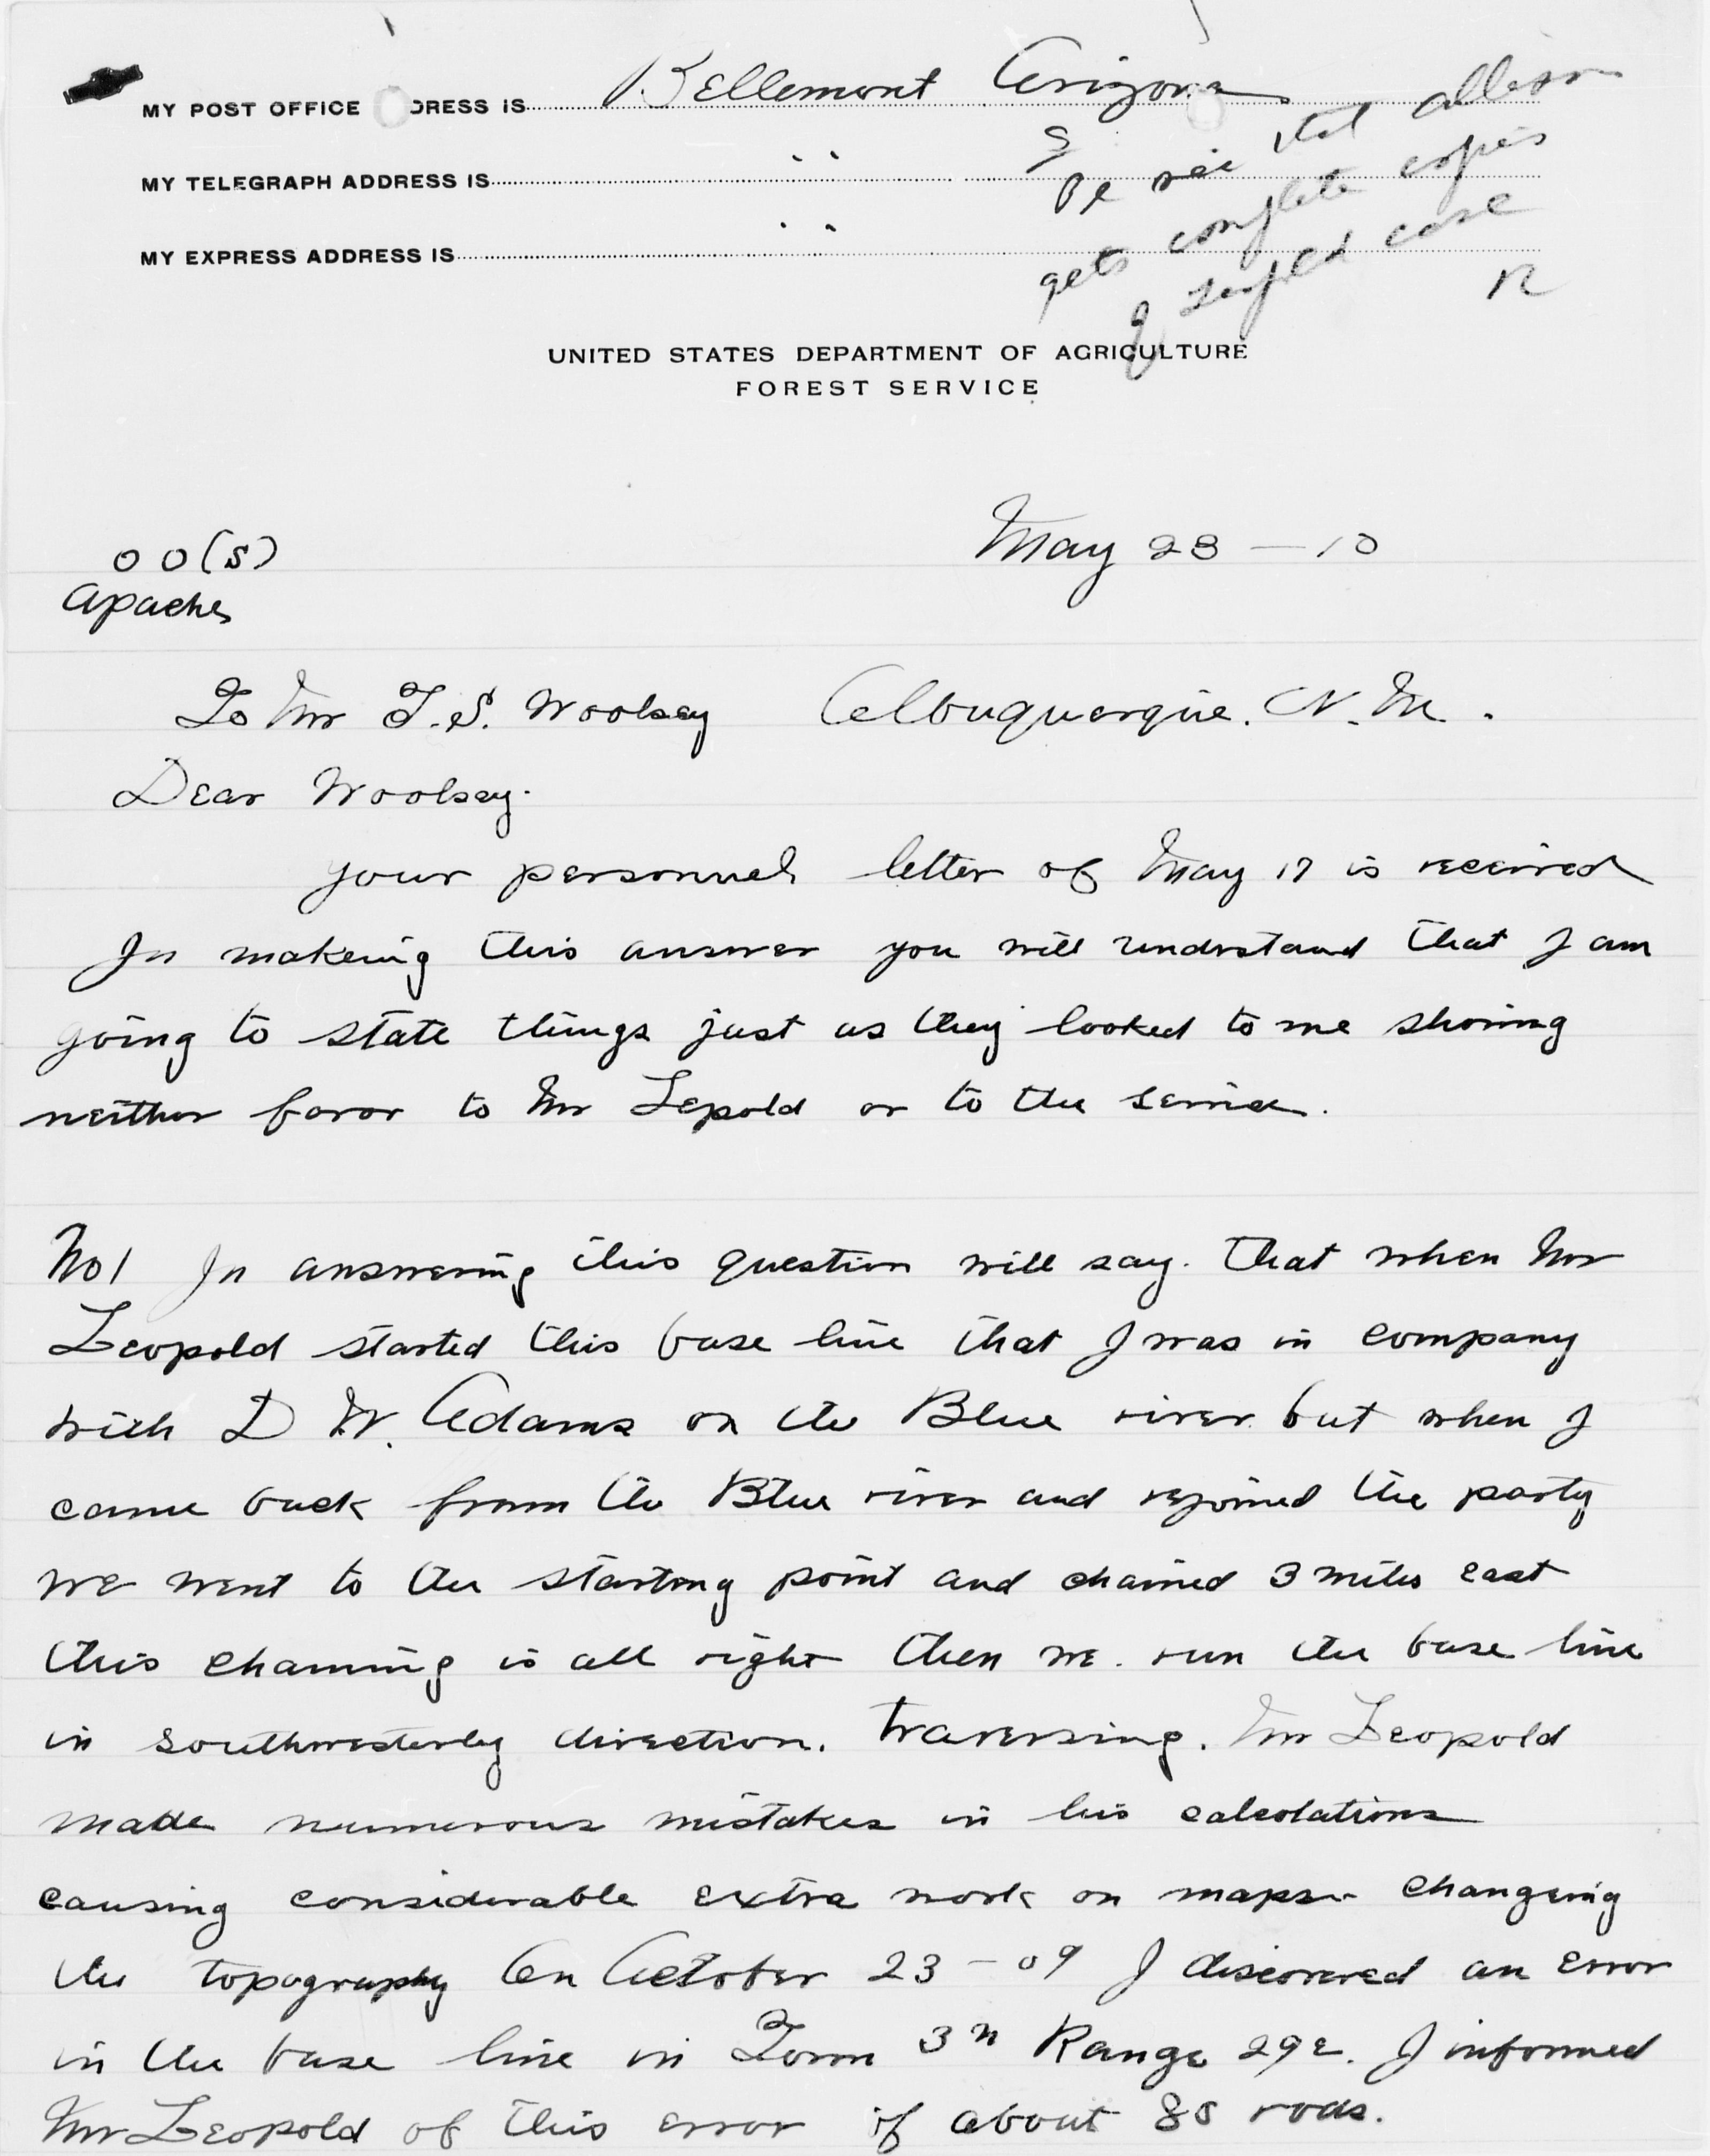 MY POST OFFICE DRESS IS Bellemont Arizona
MY TELEGRAPH ADDRESS IS " 
MY EXPRESS ADDRESS IS "
S
Pl see that allison
gets complete copies
of Leopold case
R
UNITED STATES DEPARTMENT OF AGRICULTURE
FOREST SERVICE
May 23 – 10
O O (S)
Apache
To Mr T. S. Woolsey Albuquerque. N. M.
Dear Woolsey.
your personnel letter of May 17 is received
In makeing this answer you will understand that I am
going to state things just as they looked to me showing
neither favor to Mr Lepold or to the service.
No 1 In answering this question will say. that when Mr
Leopold started this base line that I was in company
with D W. Adams on the Blue river but when I
came back from the Blue river and rejoined the party
we went to the starting point and chained 3 miles east
this chaining is all right then we run the base line
in southwesterly direction. traversing. Mr Leopold
made numerous mistakes in his calcolations
causing considerable extra work on maps changeing
the topography On October 23 – 09 I discovered an error
in the base line in Town 3 n Range 29 E. I informed
Mr Leopold of this error of about 80 rods.